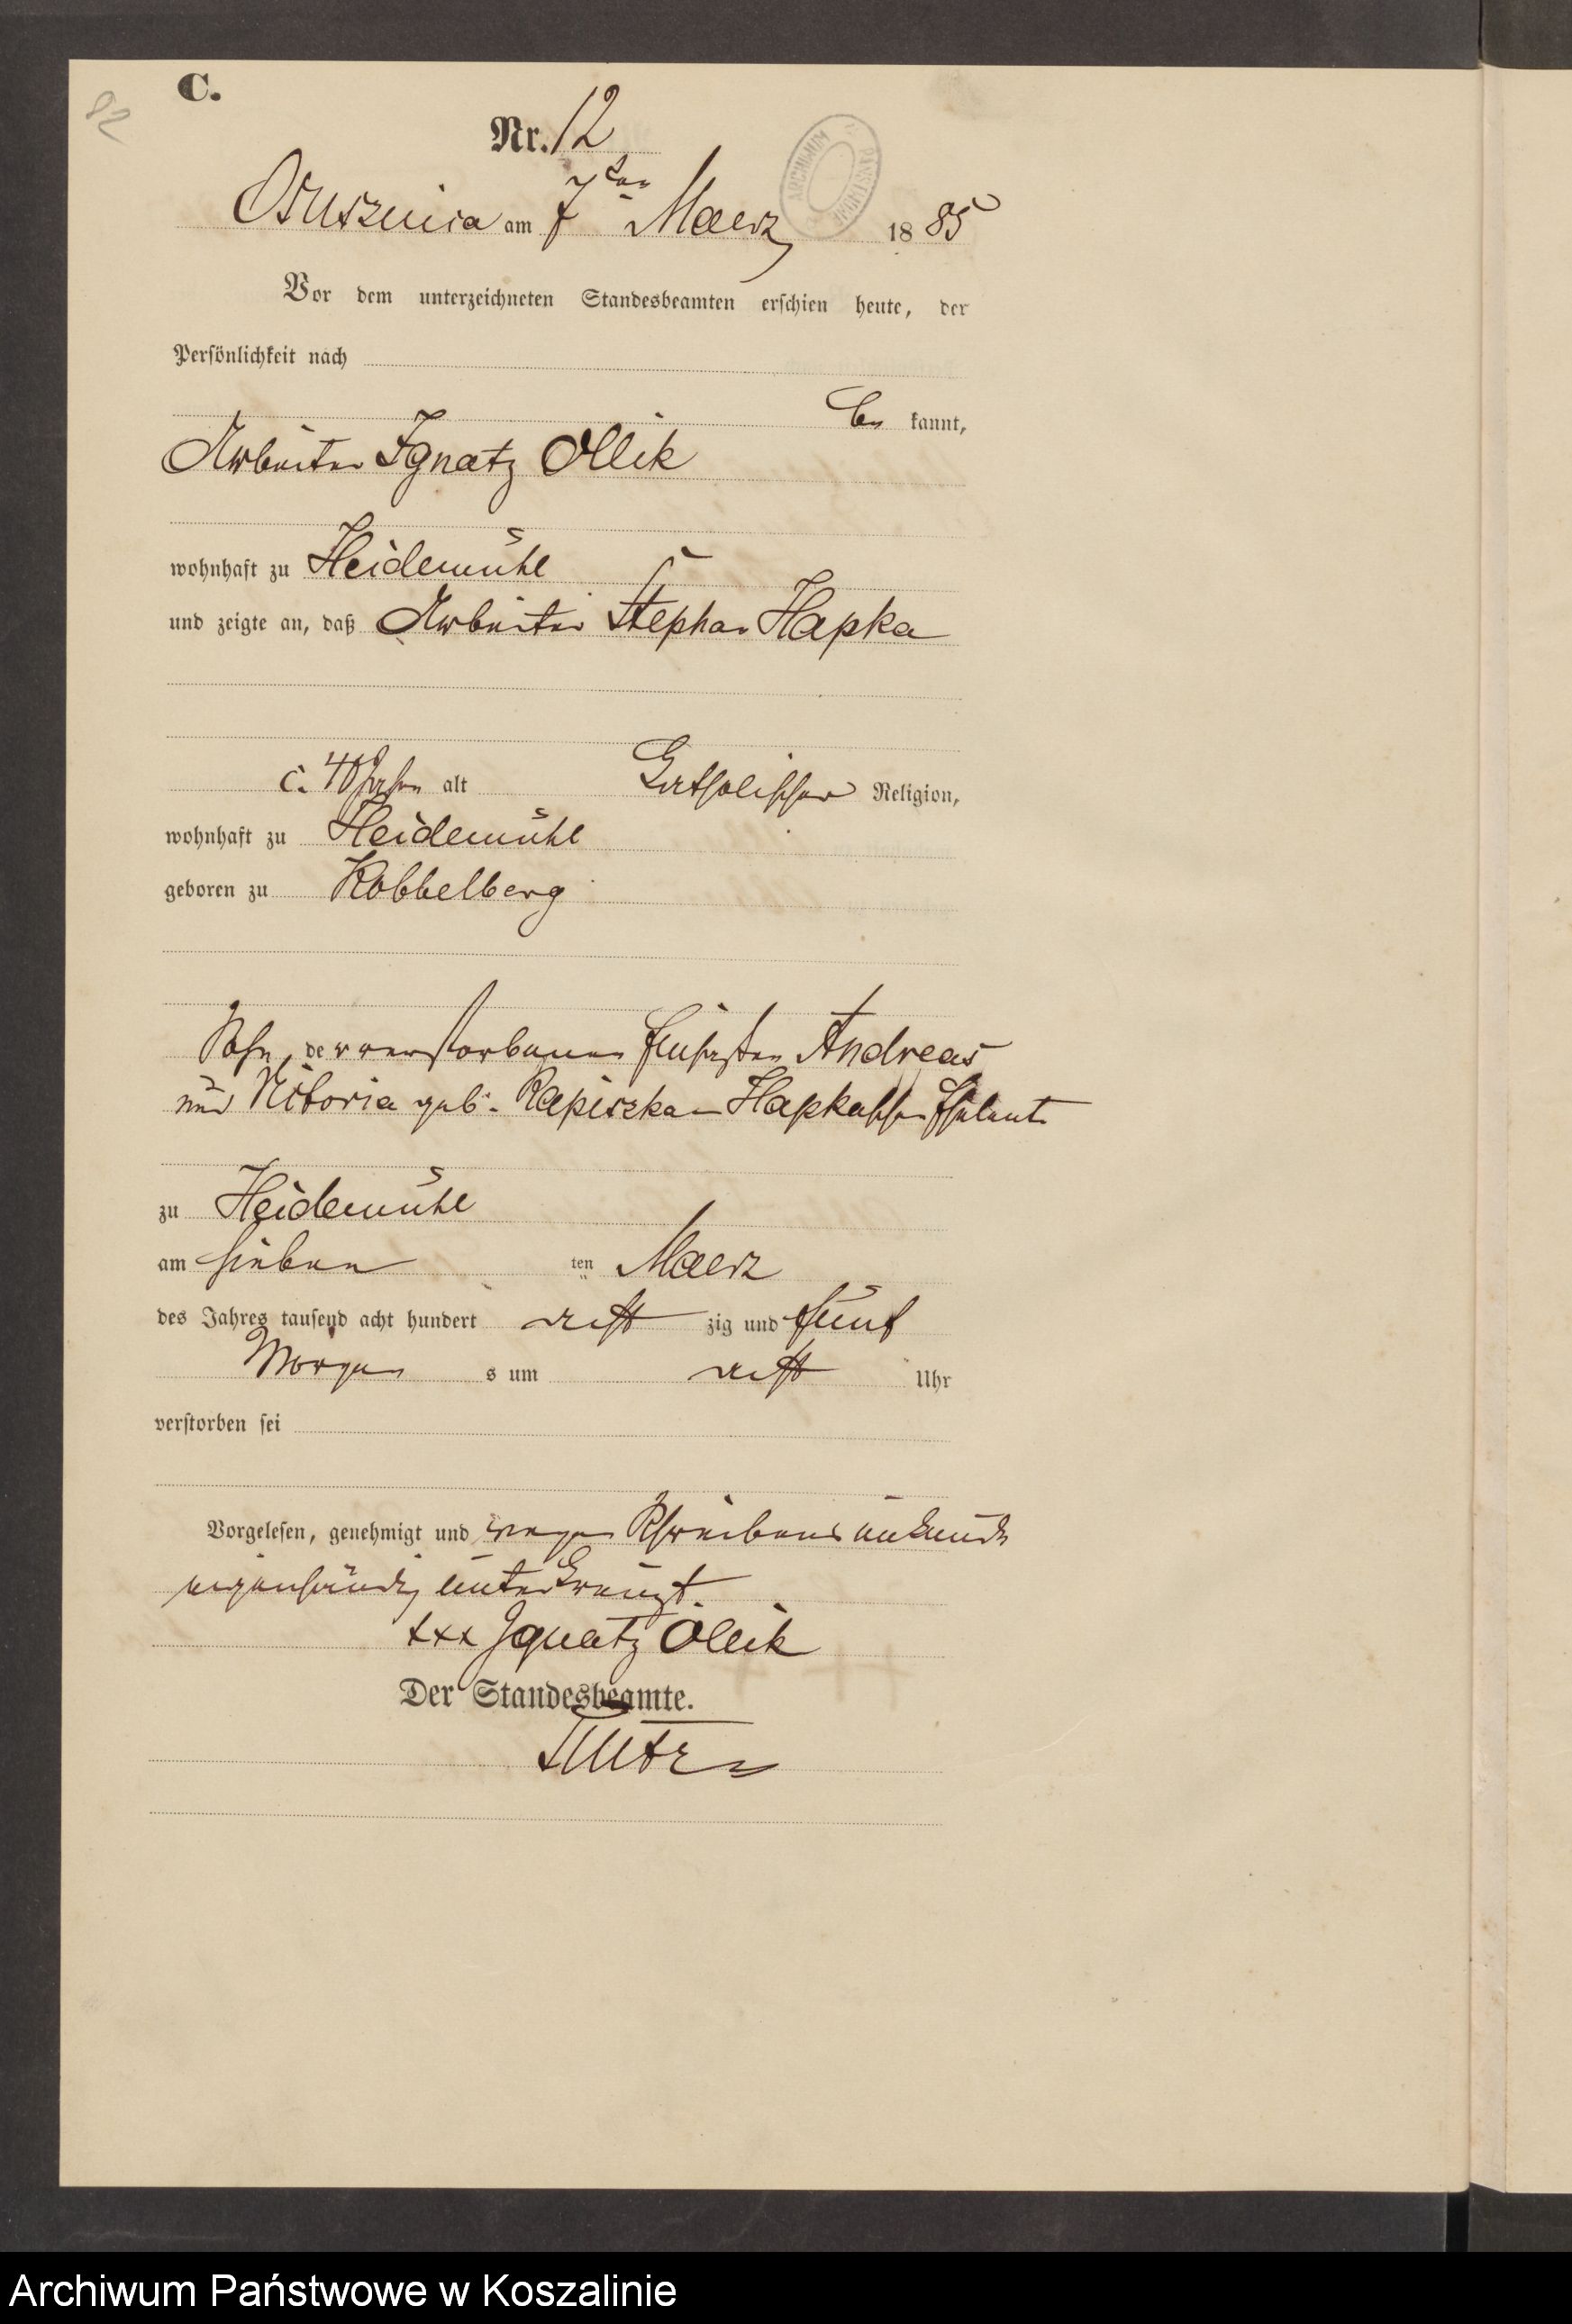 82
C.
Nr. 12
ARCHIWUM PAŃSTWOWE
Osusznica am 7ten Maerz 1885
Vor dem unterzeichneten Standesbeamten erschien heute, der
Persönlichkeit nach
be kannt,
Arbeiter Ignatz Ollik
wohnhaft zu Heidemühl
und zeigte an, daß Arbeiter Stephan Hapka
c. 40 Jahre alt Katholischer Religion,
wohnhaft zu Heidemühl
geboren zu Kobbelberg
Sohn der verstorbenen Andreas
und geb. Rapiszka Hapkaschen Eheleute
zu Heidemühl
am sieben ten Maerz
des Jahres tausend acht hundert acht zig und fünf
Morgen s um acht Uhr
verstorben sei
Vorgelesen, genehmigt und wegen Schreibensunkunde
eigenhändig unterkreuzt
xxx Ignatz Olick
Der Standesbeamte.
Archiwum Państwowe w Koszalinie